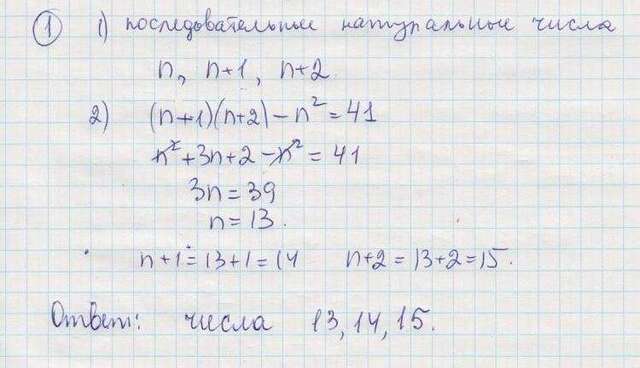 ① 1) последовательные натуральные числа
n, n+1, n+2
2) (n+1)(n+2) – n² = 41
n² + 3n + 2 – n² = 41
3n = 39
n = 13.
n+1 = 13+1 = 14 n+2 = 13+2 = 15.
Ответ: числа 13, 14, 15.